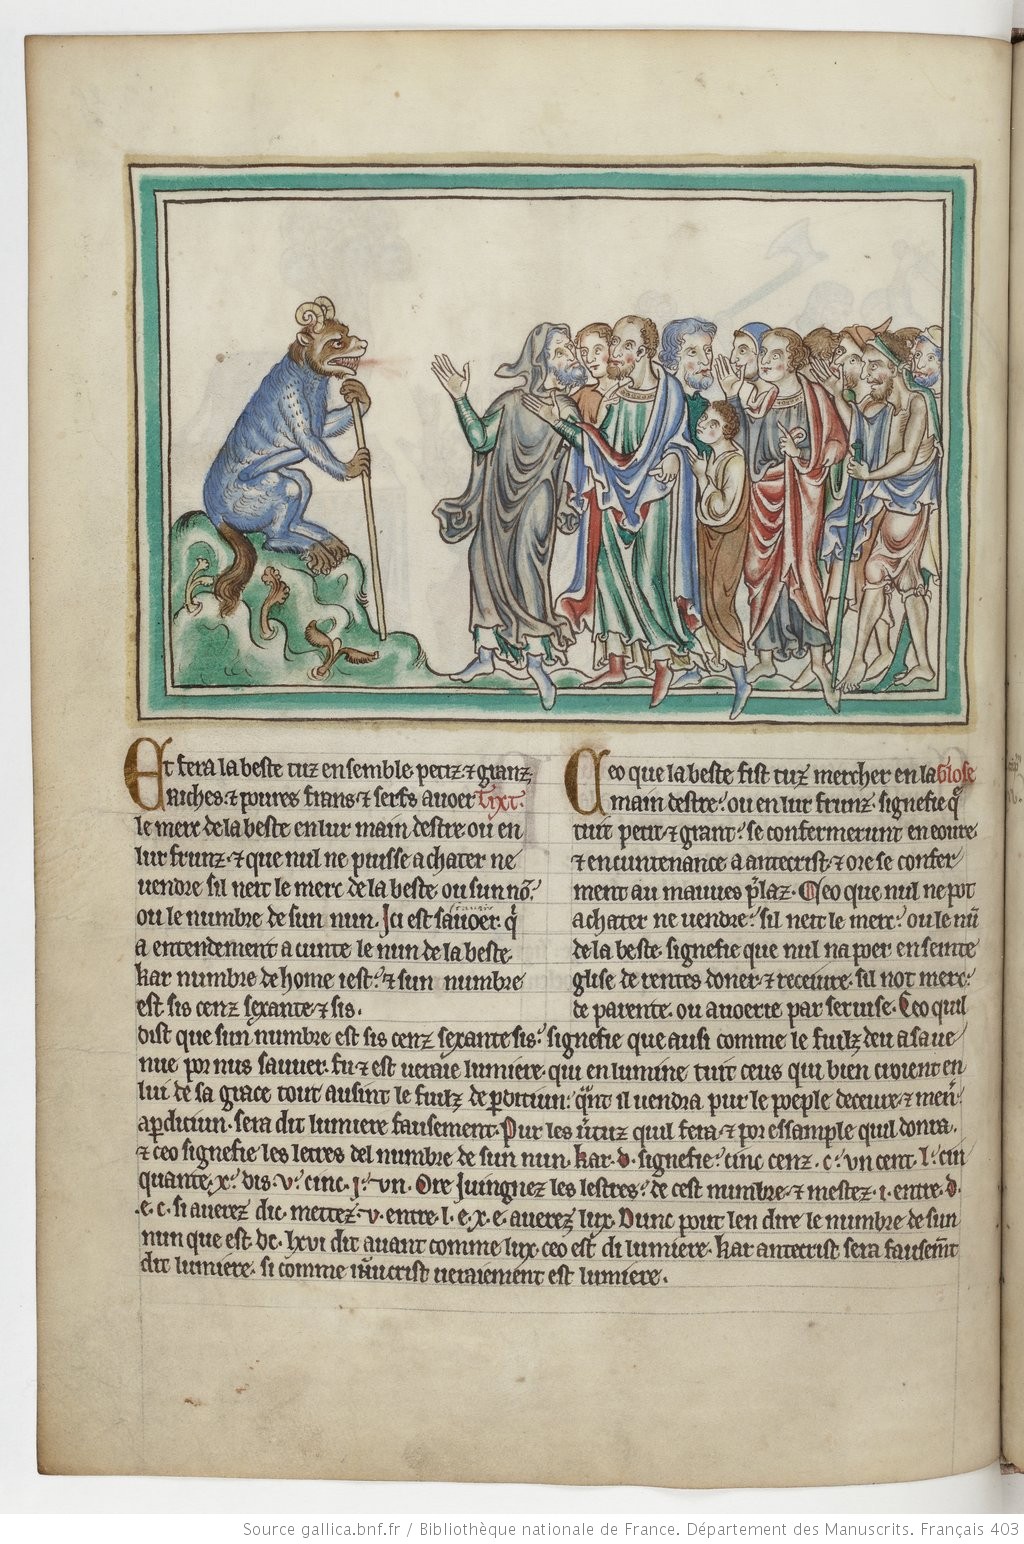 Et fera la beste tuz ensemble. petiz ⁊ granz.
Riches. ⁊ poures. frans. ⁊ serfs. auoer Tixt.
le merc de la beste en lur main destre. ou en
lur frunz. ⁊ que nul ne puisse achater ne
uendre. sil neit le merc de la beste. ou sun nō.
ou le numbre de sun nun. Ici est sauoer. q̄
a entendement acunte le nun de la beste.
kar numbre de home iest. ⁊ sun numbre
est sis cenz sexante. ⁊ sis.
Ceo que la beste fist tuz mercher en la Glose
main destre. ou en lur frunz. signefie q̄
tuit petit. ⁊ grant. se confermerunt en eoure
⁊ en cuntenance a antecrist. ⁊ ore se confer
ment au mauues p̄laz. Ceo que nul ne pot
achater ne uendre. sil neit le merc. ou le nū
de la beste. signefie que nul na poer en seinte
glise de rentes doner. ⁊ receiure. sil not merc.
de parente. ou auoerie par seruise. Ceo quil
dist que sun numbre est sis cenz sexante sis. signefie que ausi comme le fuilz deu a sa ue
nue por nus sauuer. fu. ⁊ est ueraie lumiere. qui enlumine tuit ceus qui bien uoient en
lui de sa grace tout ausint le fuilz de perdiciun. quāt il uendra pur le poeple deceure. ⁊ men̄
a perdiciun. sera dit lumiere fausement. Pur les u̾tuz quil fera. ⁊ por essample quil donra.
⁊ ceo signefie les letres del numbre de sun nun. kar. d. signefie. cinc cenz. c. un cent. l. cin
quante. x. dis. v. cinc. i. un. Ore iuingnez les lestres. de cest numbre. ⁊ mestez. i. entre. d.
e. c. si auerez dic. mettez. v. entre. l. e. x. e. auerez lux. Dunc pout len dire le numbre de sun
nun que est dc. lxvi dit auant comme lux. ceo est di lumiere. kar antecrist sera fausem̄t
dit lumiere. si comme ueraiement est lumiere.
Source gallica.bnf.fr / Bibliothèque nationale de France. Département des Manuscrits. Français 403